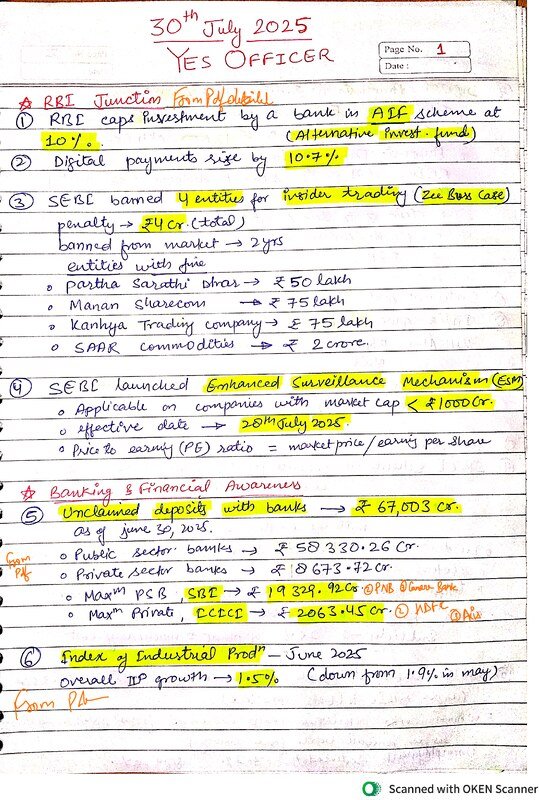 30th July 2025
YES OFFICER
Page No. 1
Date :
☆ RBI Junction Form Pdf detailed
① RBI caps Investment by a bank in AIF scheme at
10%. (Alternative Invest. fund)
② Digital payments rise by 10.7%
③ SEBI banned 4 entities for insider trading (Zee Buss Case)
penalty → ₹4 Cr. (total)
banned from market → 2 yrs
entities with fine
○ Partha Sarathi Dhar → ₹ 50 lakh
○ Manan Sharecom → ₹ 75 lakh
○ Kanhya Trading company → ₹ 75 lakh
○ SAAR commodities → ₹ 2 crore.
④ SEBI launched Enhanced Surveillance Mechanism (ESM)
○ Applicable on companies with market cap < ₹1000 Cr.
○ effective date → 28th July 2025.
○ Price to earning (PE) ratio = market price / earning per share
☆ Banking & Financial Awareness
⑤ Unclaimed deposits with banks → ₹ 67,003 Cr.
as of june 30, 2025.
○ Public sector banks → ₹ 58 330.26 Cr.
From Pdf
○ Private sector banks → ₹ 8 673.72 Cr.
○ Maxm PSB, SBI → ₹ 19 329.92 Cr. ② PNB ③ Canara Bank
○ Maxm Private, ICICI → ₹ 2063.45 Cr. ② HDFC ③ Axis
⑥ Index of Industrial Prodn – June 2025
Overall IIP growth → 1.5% (down from 1.9% in may)
From Pdf
Scanned with OKEN Scanner